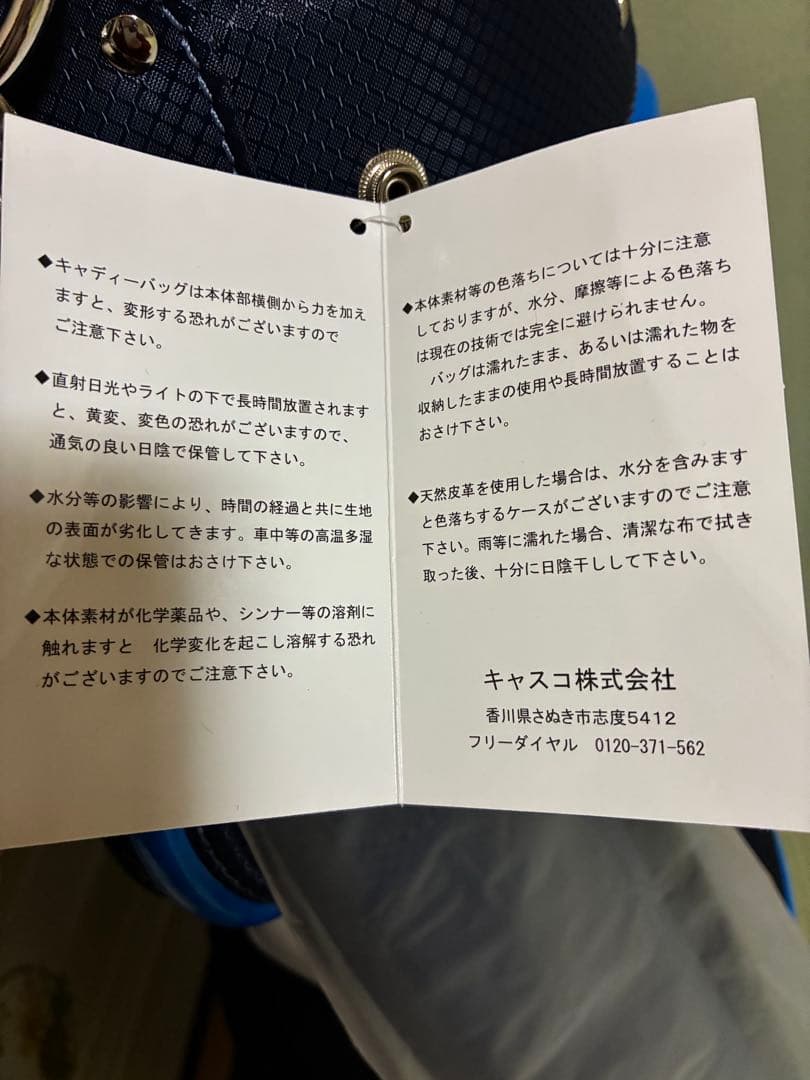 ◆キャディーバッグは本体部横側から力を加え
ますと、変形する恐れがございますので
ご注意下さい。
◆直射日光やライトの下で長時間放置されます
と、黄変、変色の恐れがございますので、
通気の良い日陰で保管して下さい。
◆水分等の影響により、時間の経過と共に生地
の表面が劣化してきます。車中等の高温多湿
な状態での保管はおさけ下さい。
◆本体素材が化学薬品や、シンナー等の溶剤に
触れますと　化学変化を起こし溶解する恐れ
がございますのでご注意下さい。
◆本体素材等の色落ちについては十分に注意
しておりますが、水分、摩擦等による色落ち
は現在の技術では完全に避けられません。
バッグは濡れたまま、あるいは濡れた物を
収納したままの使用や長時間放置することは
おさけ下さい。
◆天然皮革を使用した場合は、水分を含みます
と色落ちするケースがございますのでご注意
下さい。雨等に濡れた場合、清潔な布で拭き
取った後、十分に日陰干しして下さい。
キャスコ株式会社
香川県さぬき市志度5412
フリーダイヤル　0120-371-562